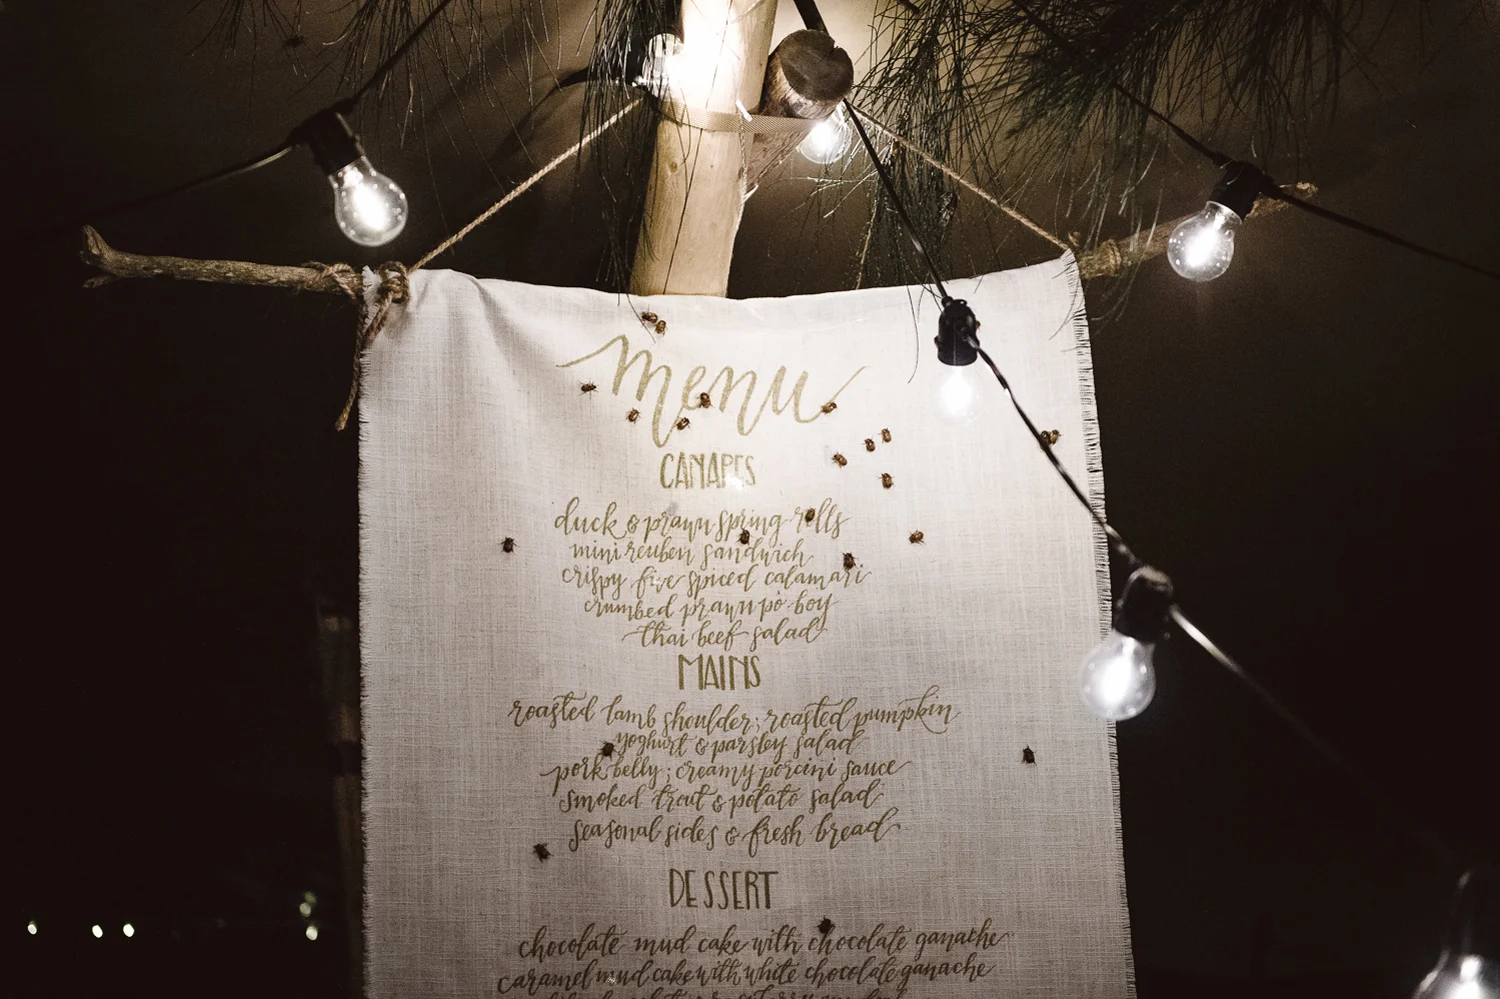 menu
CANAPES
duck & prawn spring rolls
mini reuben sandwich
crispy five spiced calamari
crumbed prawn po boy
thai beef salad
MAINS
roasted lamb shoulder; roasted pumpkin
yoghurt & parsley salad
pork belly; creamy porcini sauce
smoked trout & potato salad
seasonal sides & fresh bread
DESSERT
chocolate mud cake with chocolate ganache
caramel mud cake with white chocolate ganache